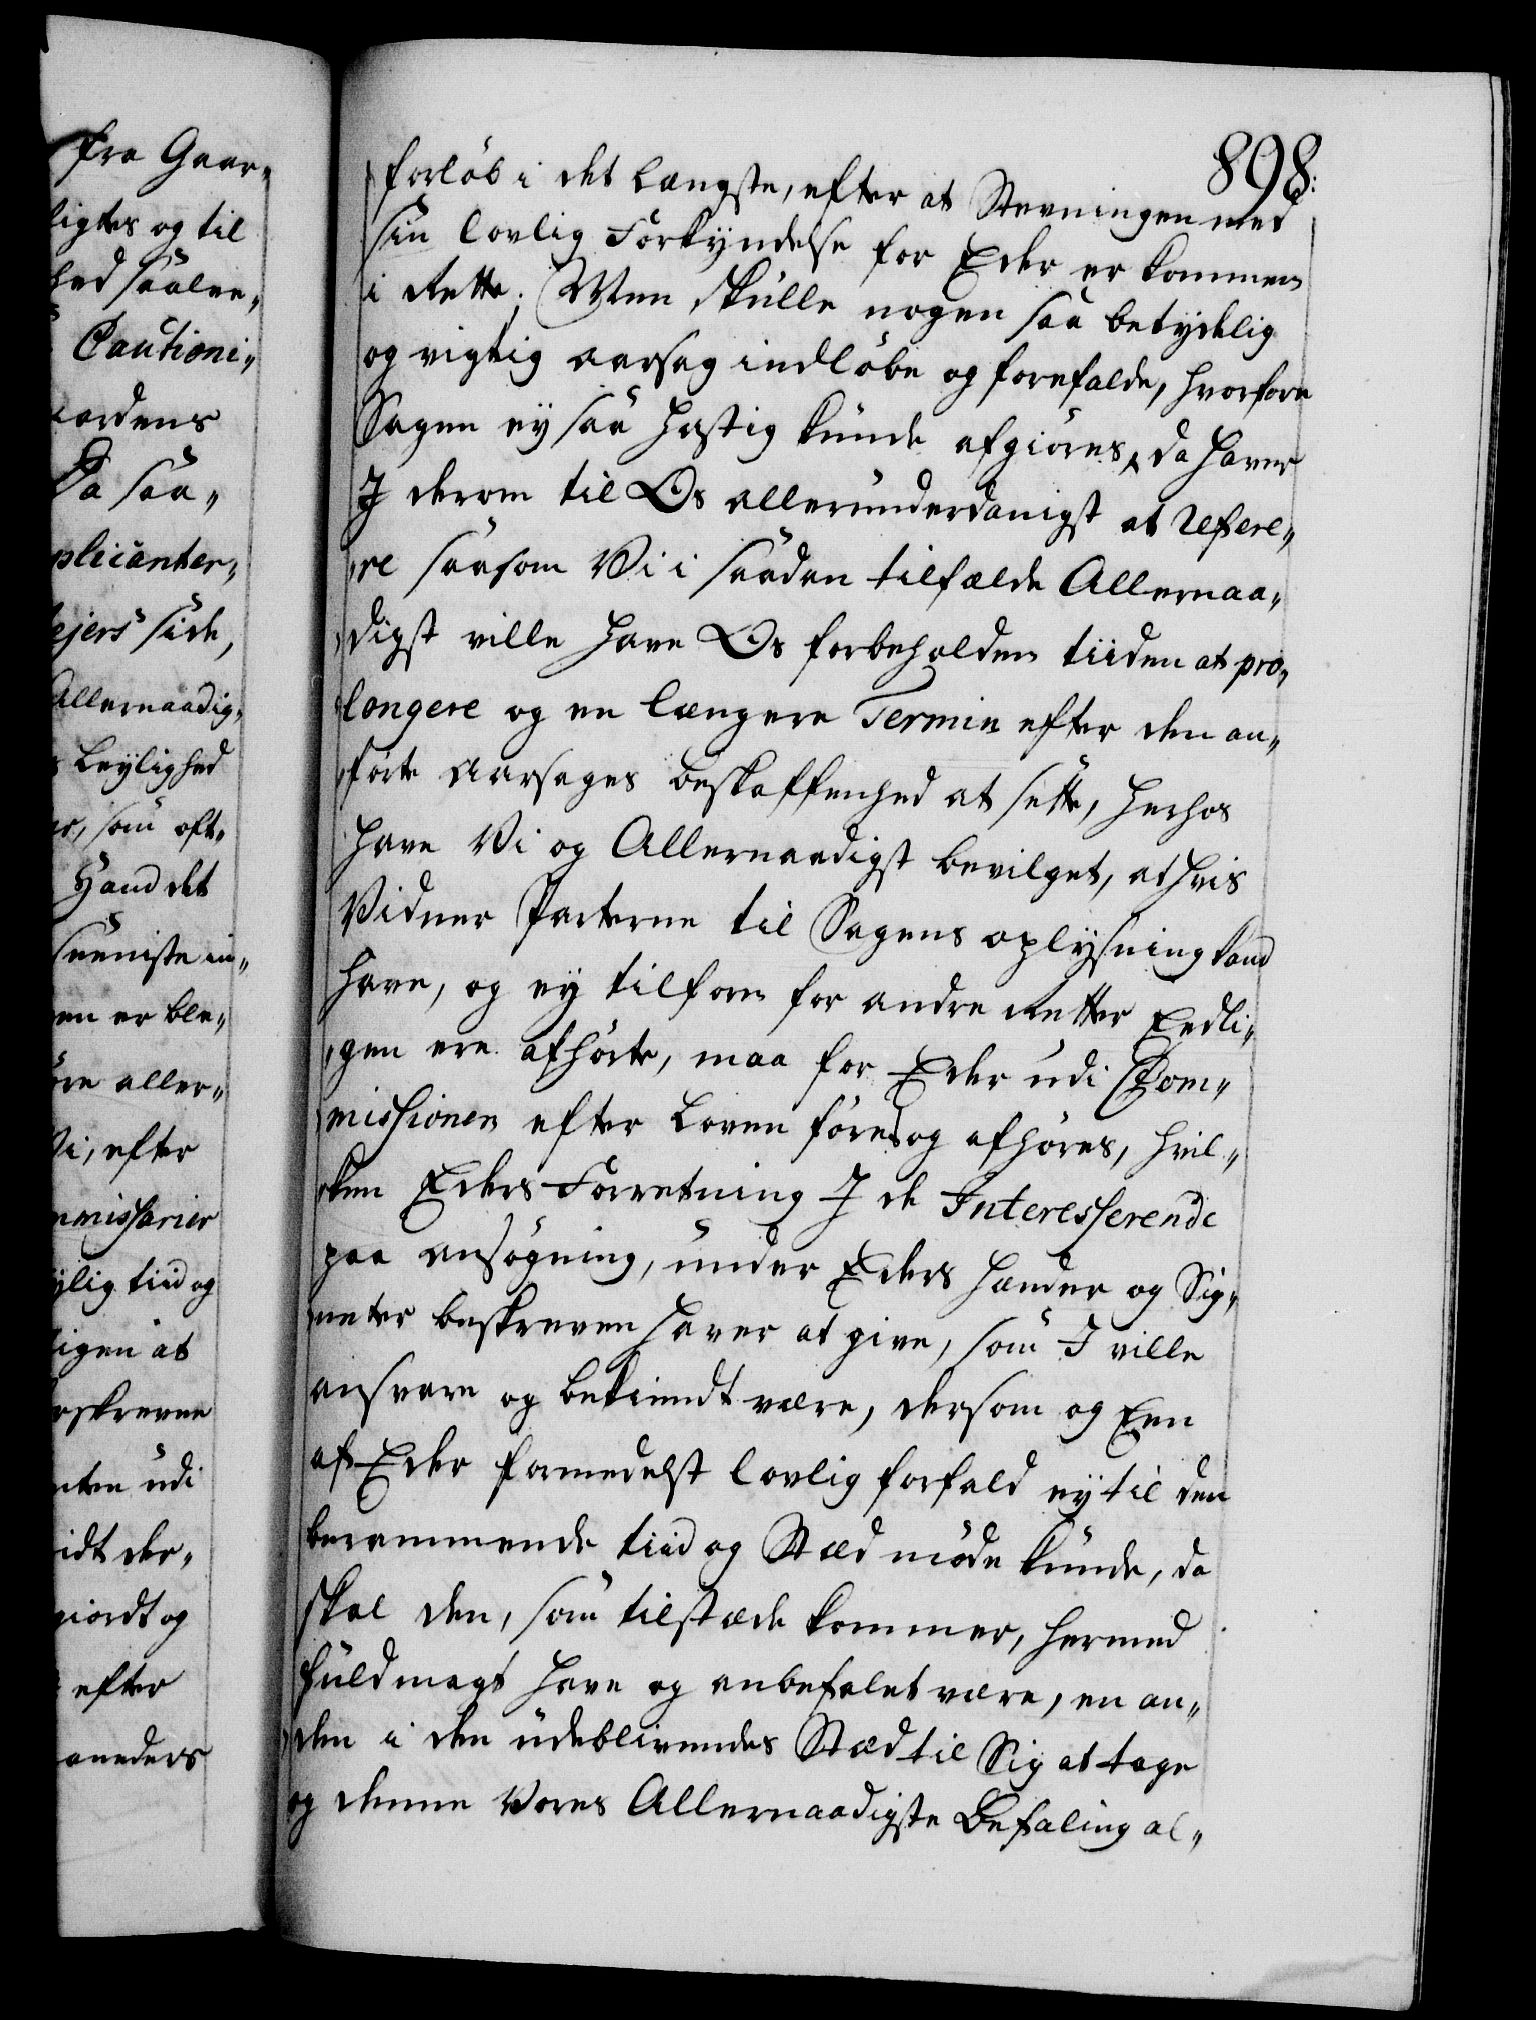 fra Gaar„
ligtes og til
hed saalee„
Cautioni„
aardens
Da saa„
plicanter„
ejers side,
Allernaadig„
s Leylighed
er, som oft„
Haand det
seeniste in„
en er ble„
öre aller„
Vi, efter
mmissarier
ylig tiid og
igen at
erskrevne
nten udi
idt der„
giordt og
efter
aaneders
898:
forlöb i det Længste, efter at Stevningen med
sin lovlig Forkyndelse for Eder er kommen
i Rette; Men skulle nogen saa betydelig
og vigtig aarsag indlöbe og forefalde, hvorfore
Sagen ey saa hastig kunde afgiöres, da haver
I derom til Os allerunderdanigst at Refere„
„re saasom Vi i saadan tilfælde Allernaa„
„digst ville have Os forbeholden tiiden at pro„
„longere og en længere Termin efter den an„
„förte Aarsages beskaffenhed at sette, herhos
have Vi og Allernaadigst bevilget, at hvis
Vidner Parterne til Sagens oplysning kand
have, og ey tilforn for andre Retter Eedli„
„gen ere afhörte, maa for Eder udi Com„
„missionen efter Loven föres og afhöres, hvil„
„ken Eders Forretning I de Interesserende
paa ansögning, under Eders hænder og Sig„
„neter beskreven haver at give, som I ville
ansvare og bekiendt være, dersom og Een
af Eder formedelst lovlig forfald ey til den
berammende tiid og Stæd möde kunde, da
skal den, som tilstæde kommer, hermed
fuldmagt have og anbefalet være, en an„
„den i den udeblivendes Stæd til Sig at tage
og denne Vores Allernaadigste Befaling al„